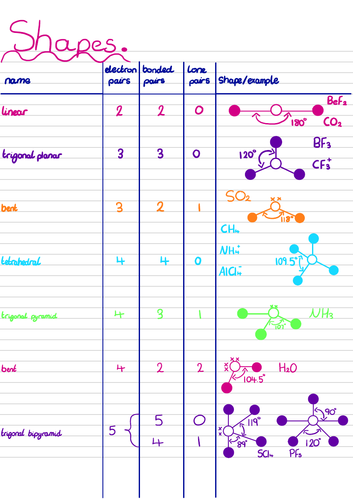 Shapes.
name electron pairs bonded pairs lone pairs Shape/example
linear 2 2 0 180° BeF₂ CO₂
trigonal planar 3 3 0 120° BF₃ CF₃⁺
bent 3 2 1 SO₂ xx 118°
tetrahedral 4 4 0 CH₄ NH₄⁺ AlCl₄⁻ 109.5°
trigonal pyramid 4 3 1 xx 107° NH₃
bent 4 2 2 xx xx 104.5° H₂O
trigonal bipyramid 5 5 0 90° 120° PF₅
4 1 xx 119° 89° SCl₄